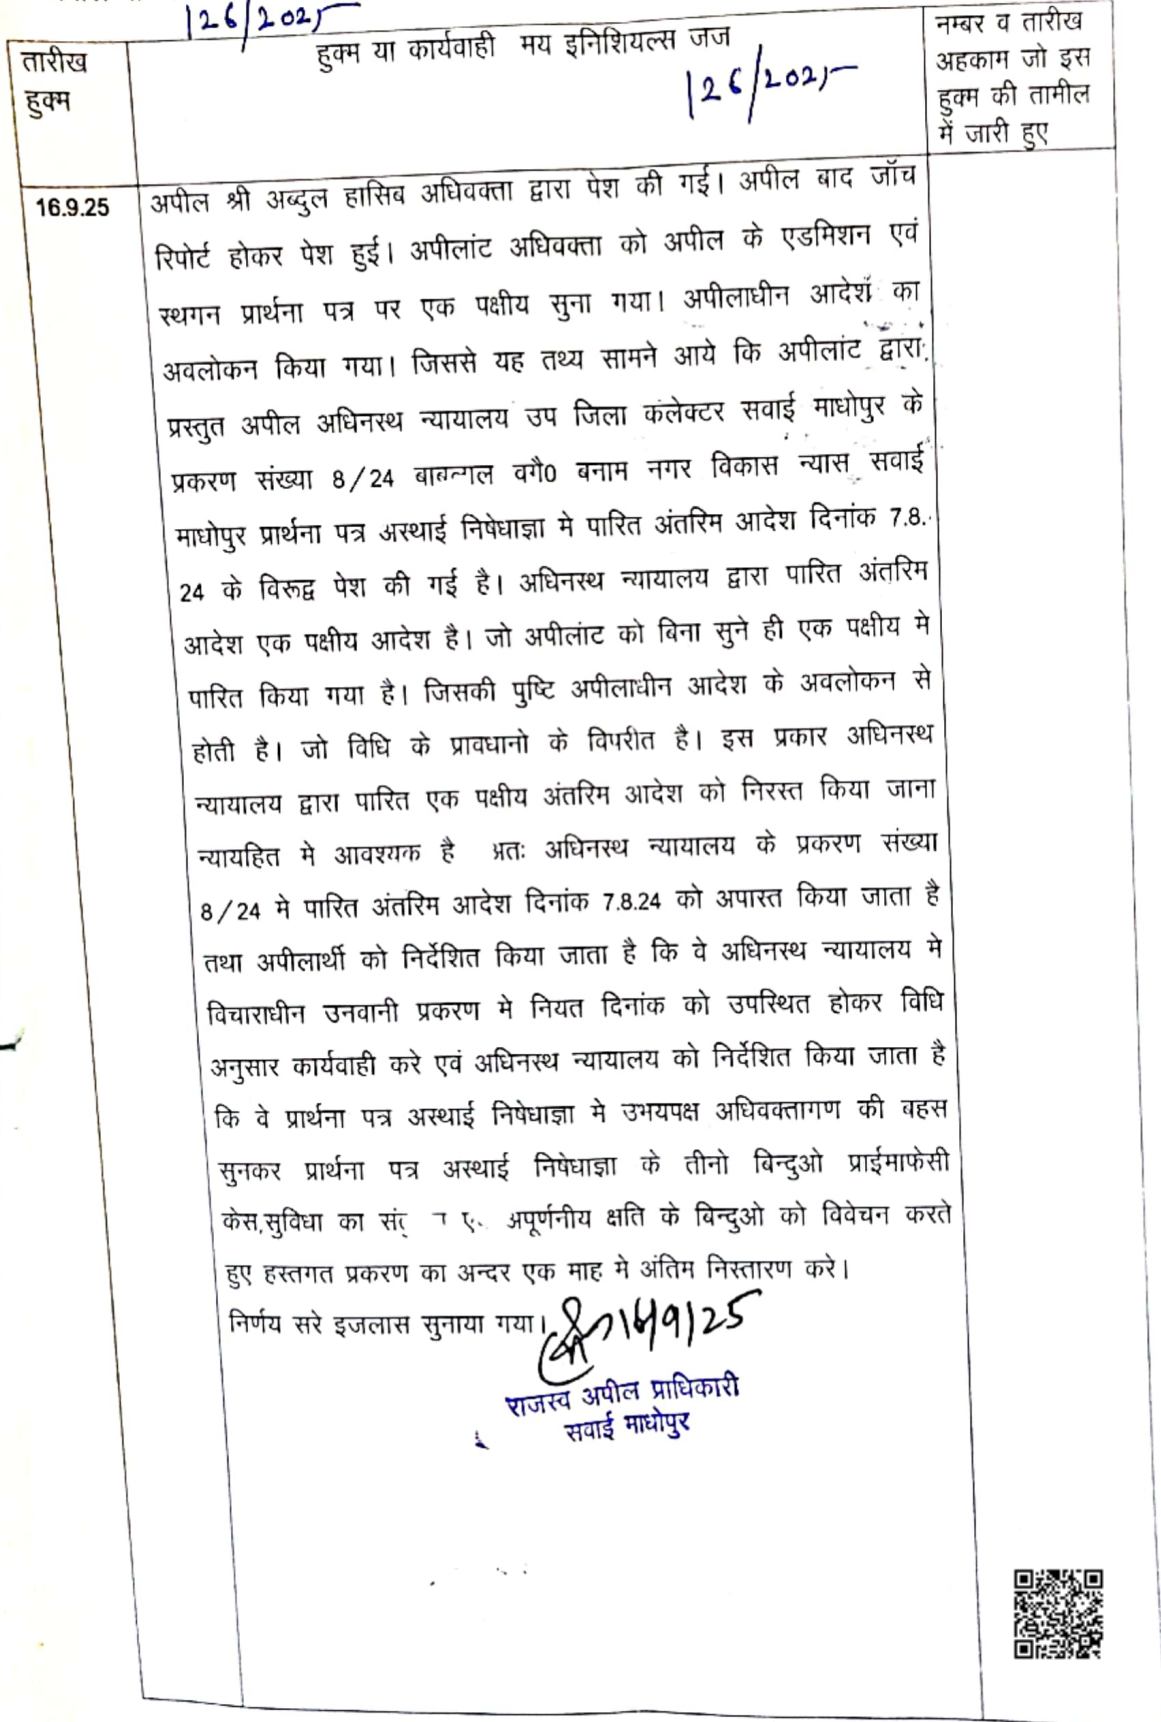 126/2025
तारीख
हुक्म
हुक्म या कार्यवाही मय इनिशियल्स जज
126/2025
नम्बर व तारीख
अहकाम जो इस
हुक्म की तामील
में जारी हुए
16.9.25
अपील श्री अब्दुल हासिब अधिवक्ता द्वारा पेश की गई। अपील बाद जॉच
रिपोर्ट होकर पेश हुई। अपीलांट अधिवक्ता को अपील के एडमिशन एवं
स्थगन प्रार्थना पत्र पर एक पक्षीय सुना गया। अपीलाधीन आदेश का
अवलोकन किया गया। जिससे यह तथ्य सामने आये कि अपीलांट द्वारा
प्रस्तुत अपील अधिनस्थ न्यायालय उप जिला कलेक्टर सवाई माधोपुर के
प्रकरण संख्या 8/24 वगै0 बनाम नगर विकास न्यास सवाई
माधोपुर प्रार्थना पत्र अस्थाई निषेधाज्ञा मे पारित अंतरिम आदेश दिनांक 7.8.
24 के विरूद्व पेश की गई है। अधिनस्थ न्यायालय द्वारा पारित अंतरिम
आदेश एक पक्षीय आदेश है। जो अपीलांट को बिना सुने ही एक पक्षीय मे
पारित किया गया है। जिसकी पुष्टि अपीलाधीन आदेश के अवलोकन से
होती है। जो विधि के प्रावधानो के विपरीत है। इस प्रकार अधिनस्थ
न्यायालय द्वारा पारित एक पक्षीय अंतरिम आदेश को निरस्त किया जाना
न्यायहित मे आवश्यक है अतः अधिनस्थ न्यायालय के प्रकरण संख्या
8/24 मे पारित अंतरिम आदेश दिनांक 7.8.24 को अपास्त किया जाता है
तथा अपीलार्थी को निर्देशित किया जाता है कि वे अधिनस्थ न्यायालय मे
विचाराधीन उनवानी प्रकरण मे नियत दिनांक को उपस्थित होकर विधि
अनुसार कार्यवाही करे एवं अधिनस्थ न्यायालय को निर्देशित किया जाता है
कि वे प्रार्थना पत्र अस्थाई निषेधाज्ञा मे उभयपक्ष अधिवक्तागण की बहस
सुनकर प्रार्थना पत्र अस्थाई निषेधाज्ञा के तीनो बिन्दुओ प्राईमाफेसी
केस,सुविधा का अपूर्णनीय क्षति के बिन्दुओ को विवेचन करते
हुए हस्तगत प्रकरण का अन्दर एक माह मे अंतिम निस्तारण करे।
निर्णय सरे इजलास सुनाया गया।
16/9/25
राजस्व अपील प्राधिकारी
सवाई माधोपुर